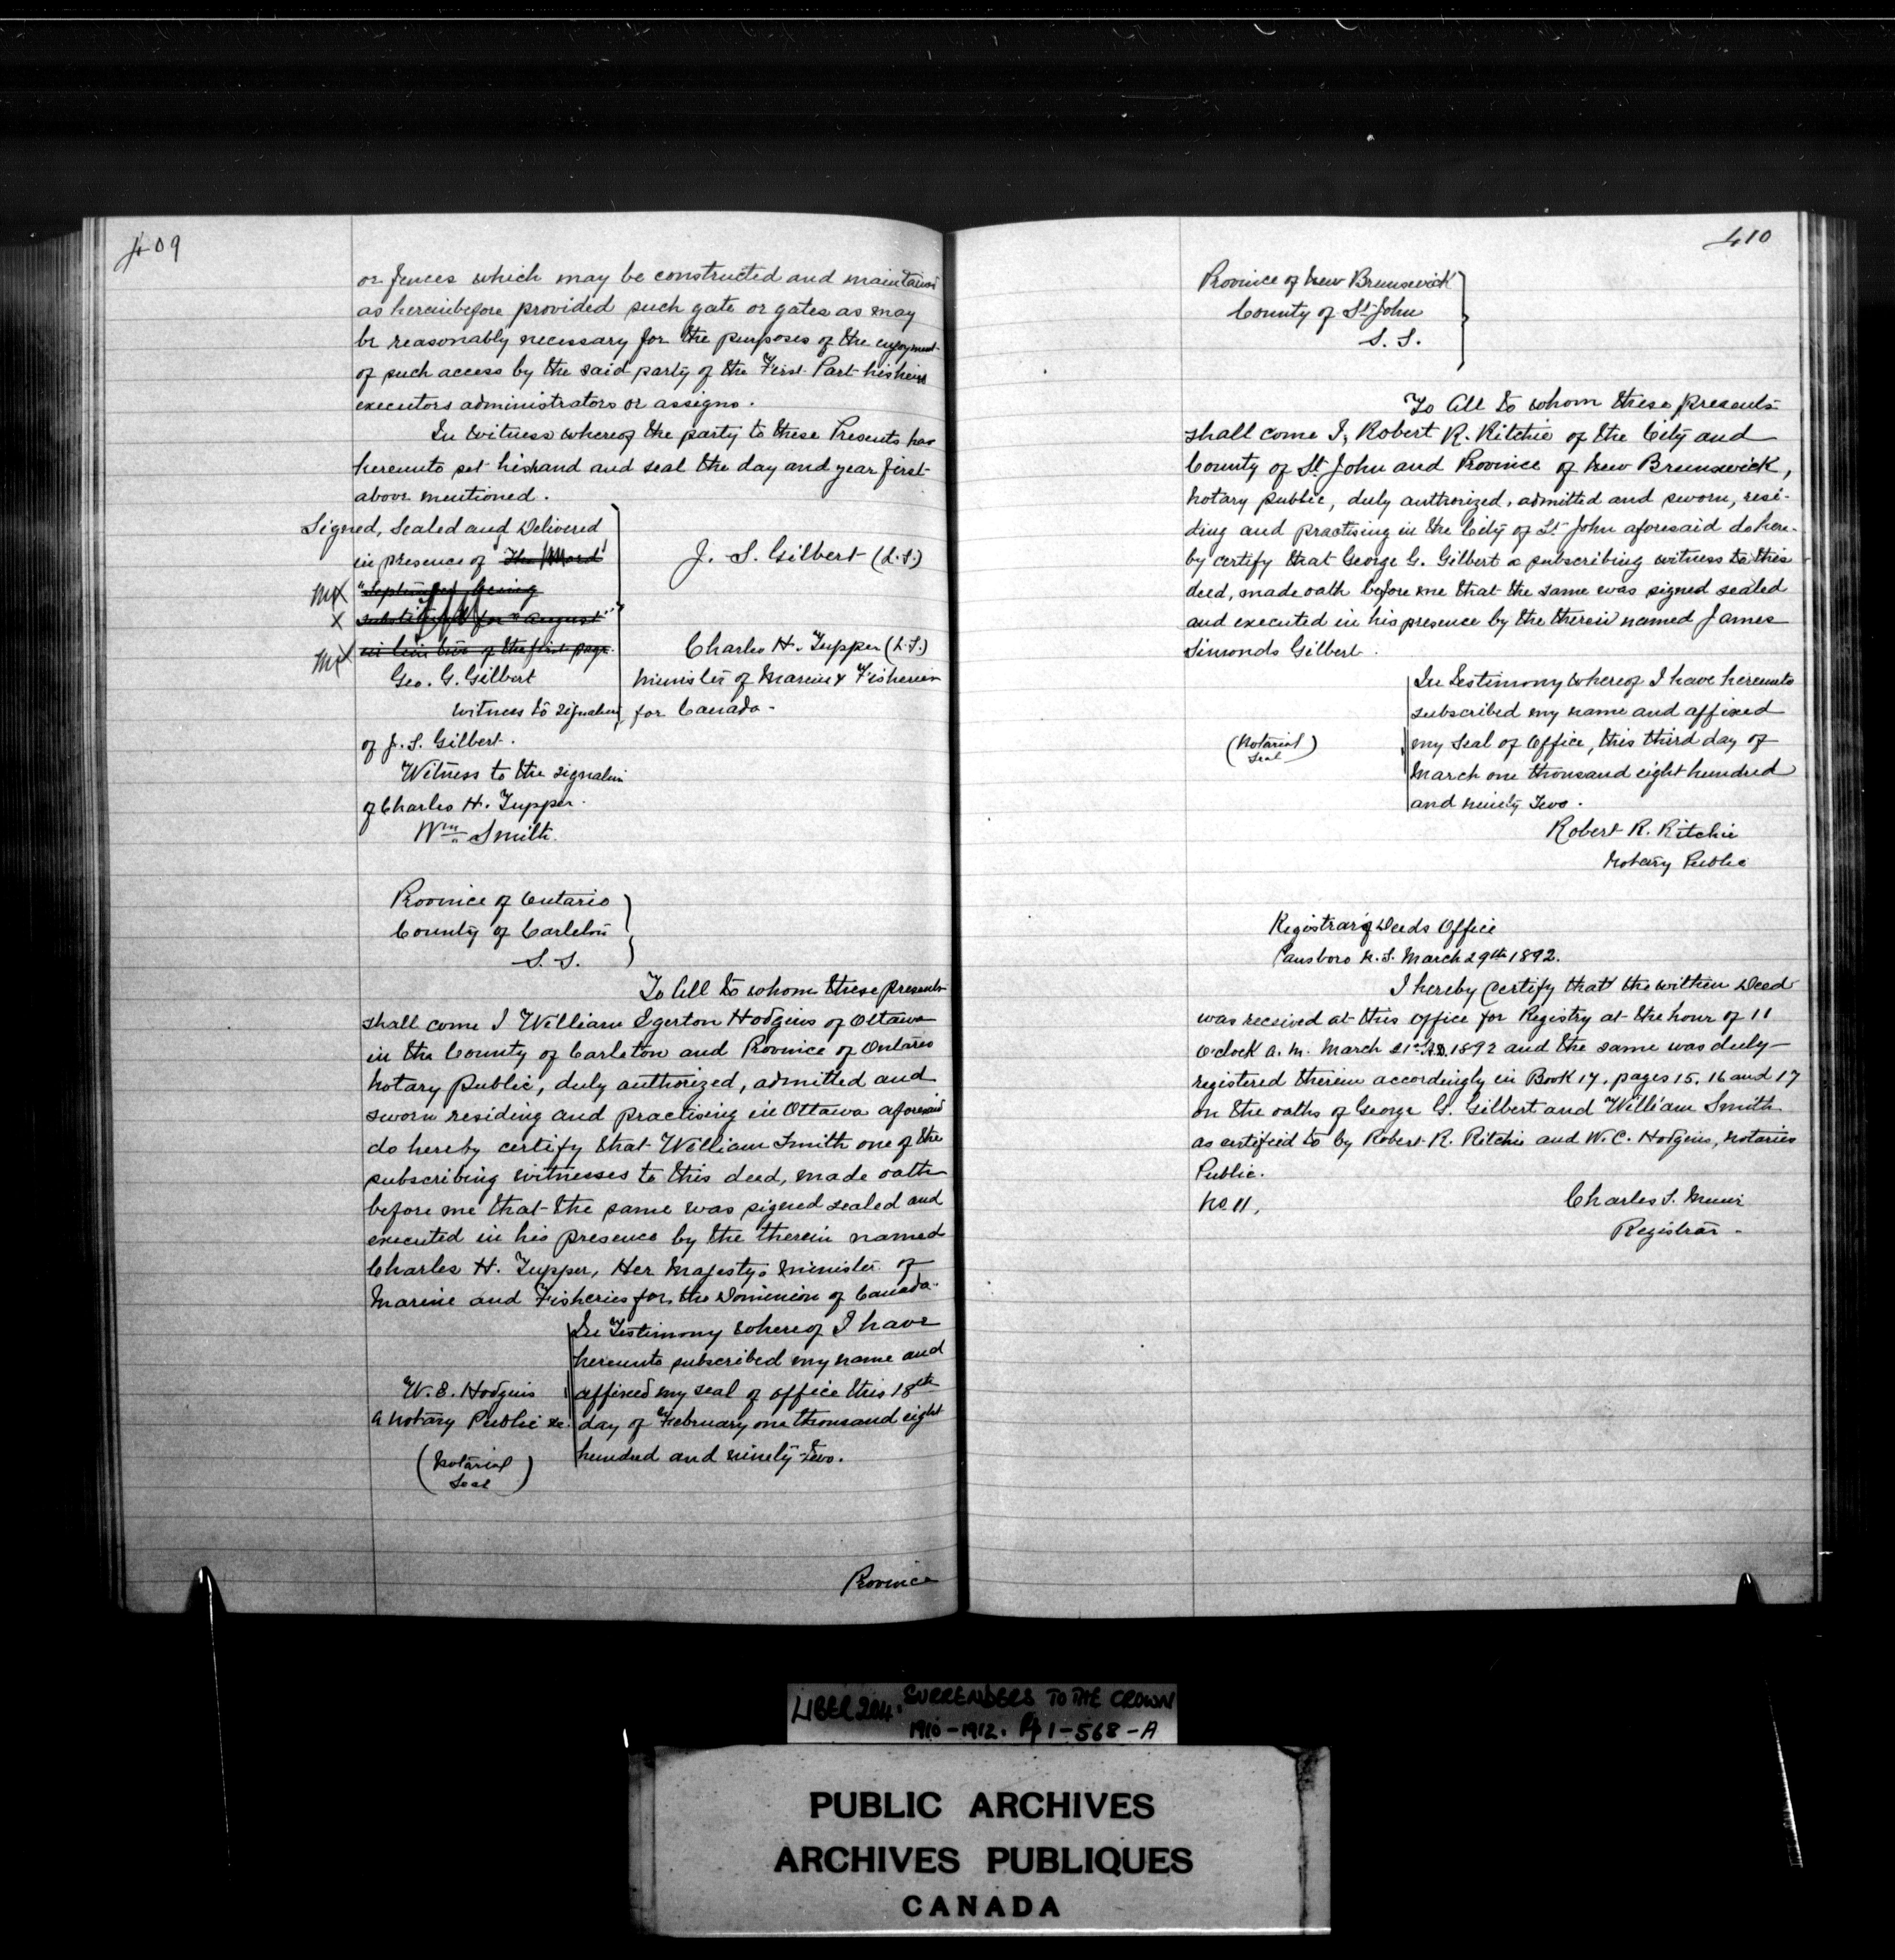 409
or fences which may be constructed and maintained
as hereinbefore provided such gate or gates as may
be reasonably necessary for the purposes of the enjoyment
of such access by the said party of the First Part his heirs
executors administrators or assigns.
In witness whereof the party to these Presents has
hereunto set his hand and seal the day and year first
above mentioned.
Signed, Sealed and Delivered
in presence of "the word
"September" being
substituted for "August"
in line two of the first page.
Geo. G. Gilbert
witness to signature
of J. S. Gilbert.
Witness to the signature
of Charles H. Tupper.
Wm. Smith.
J. S. Gilbert (L.S.)
Charles H. Tupper (L.S.)
Minister of Marine & Fisheries
for Canada.
Province of Ontario
County of Carleton
S. S.
To All to whom these presents
shall come I William Egerton Hodgins of Ottawa
in the County of Carleton and Province of Ontario
Notary Public, duly authorized, admitted and
sworn residing and practising in Ottawa aforesaid
do hereby certify that William Smith one of the
subscribing witnesses to this deed, made oath
before me that the same was signed sealed and
executed in his presence by the therein named
Charles H. Tupper, Her Majesty's Minister of
Marine and Fisheries for the Dominion of Canada.
In Testimony whereof I have
hereunto subscribed my name and
affixed my seal of office this 18th
day of February one thousand eight
hundred and ninety-two.
W. E. Hodgins
A Notary Public &c.
(Notarial
Seal)
Province
410
Province of New Brunswick
County of St. John
S. S.
To All to whom these presents
shall come I, Robert R. Ritchie of the City and
County of St. John and Province of New Brunswick,
Notary public, duly authorized, admitted and sworn, resi-
ding and practising in the City of St. John aforesaid do here-
by certify that George G. Gilbert a subscribing witness to this
deed, made oath before me that the same was signed sealed
and executed in his presence by the therein named James
Simonds Gilbert.
In Testimony whereof I have hereunto
subscribed my name and affixed
my Seal of Office, this third day of
March one thousand eight hundred
and ninety two.
(Notarial
Seal)
Robert R. Ritchie
Notary Public
Registrar of Deeds Office
Parrsboro N. S. March 29th 1892.
I hereby Certify that the within Deed
was received at this office for Registry at the hour of 11
o'clock a. m. March 21st A.D. 1892 and the same was duly
registered therein accordingly in Book 17, pages 15, 16 and 17
on the oaths of George G. Gilbert and William Smith
as certified to by Robert R. Ritchie and W. C. Hodgins, notaries
Public.
No 11,
Charles S. Muir
Registrar.
LIBER 204. SURRENDERS TO THE CROWN
1910-1912. Pp 1-568-A
PUBLIC ARCHIVES
ARCHIVES PUBLIQUES
CANADA